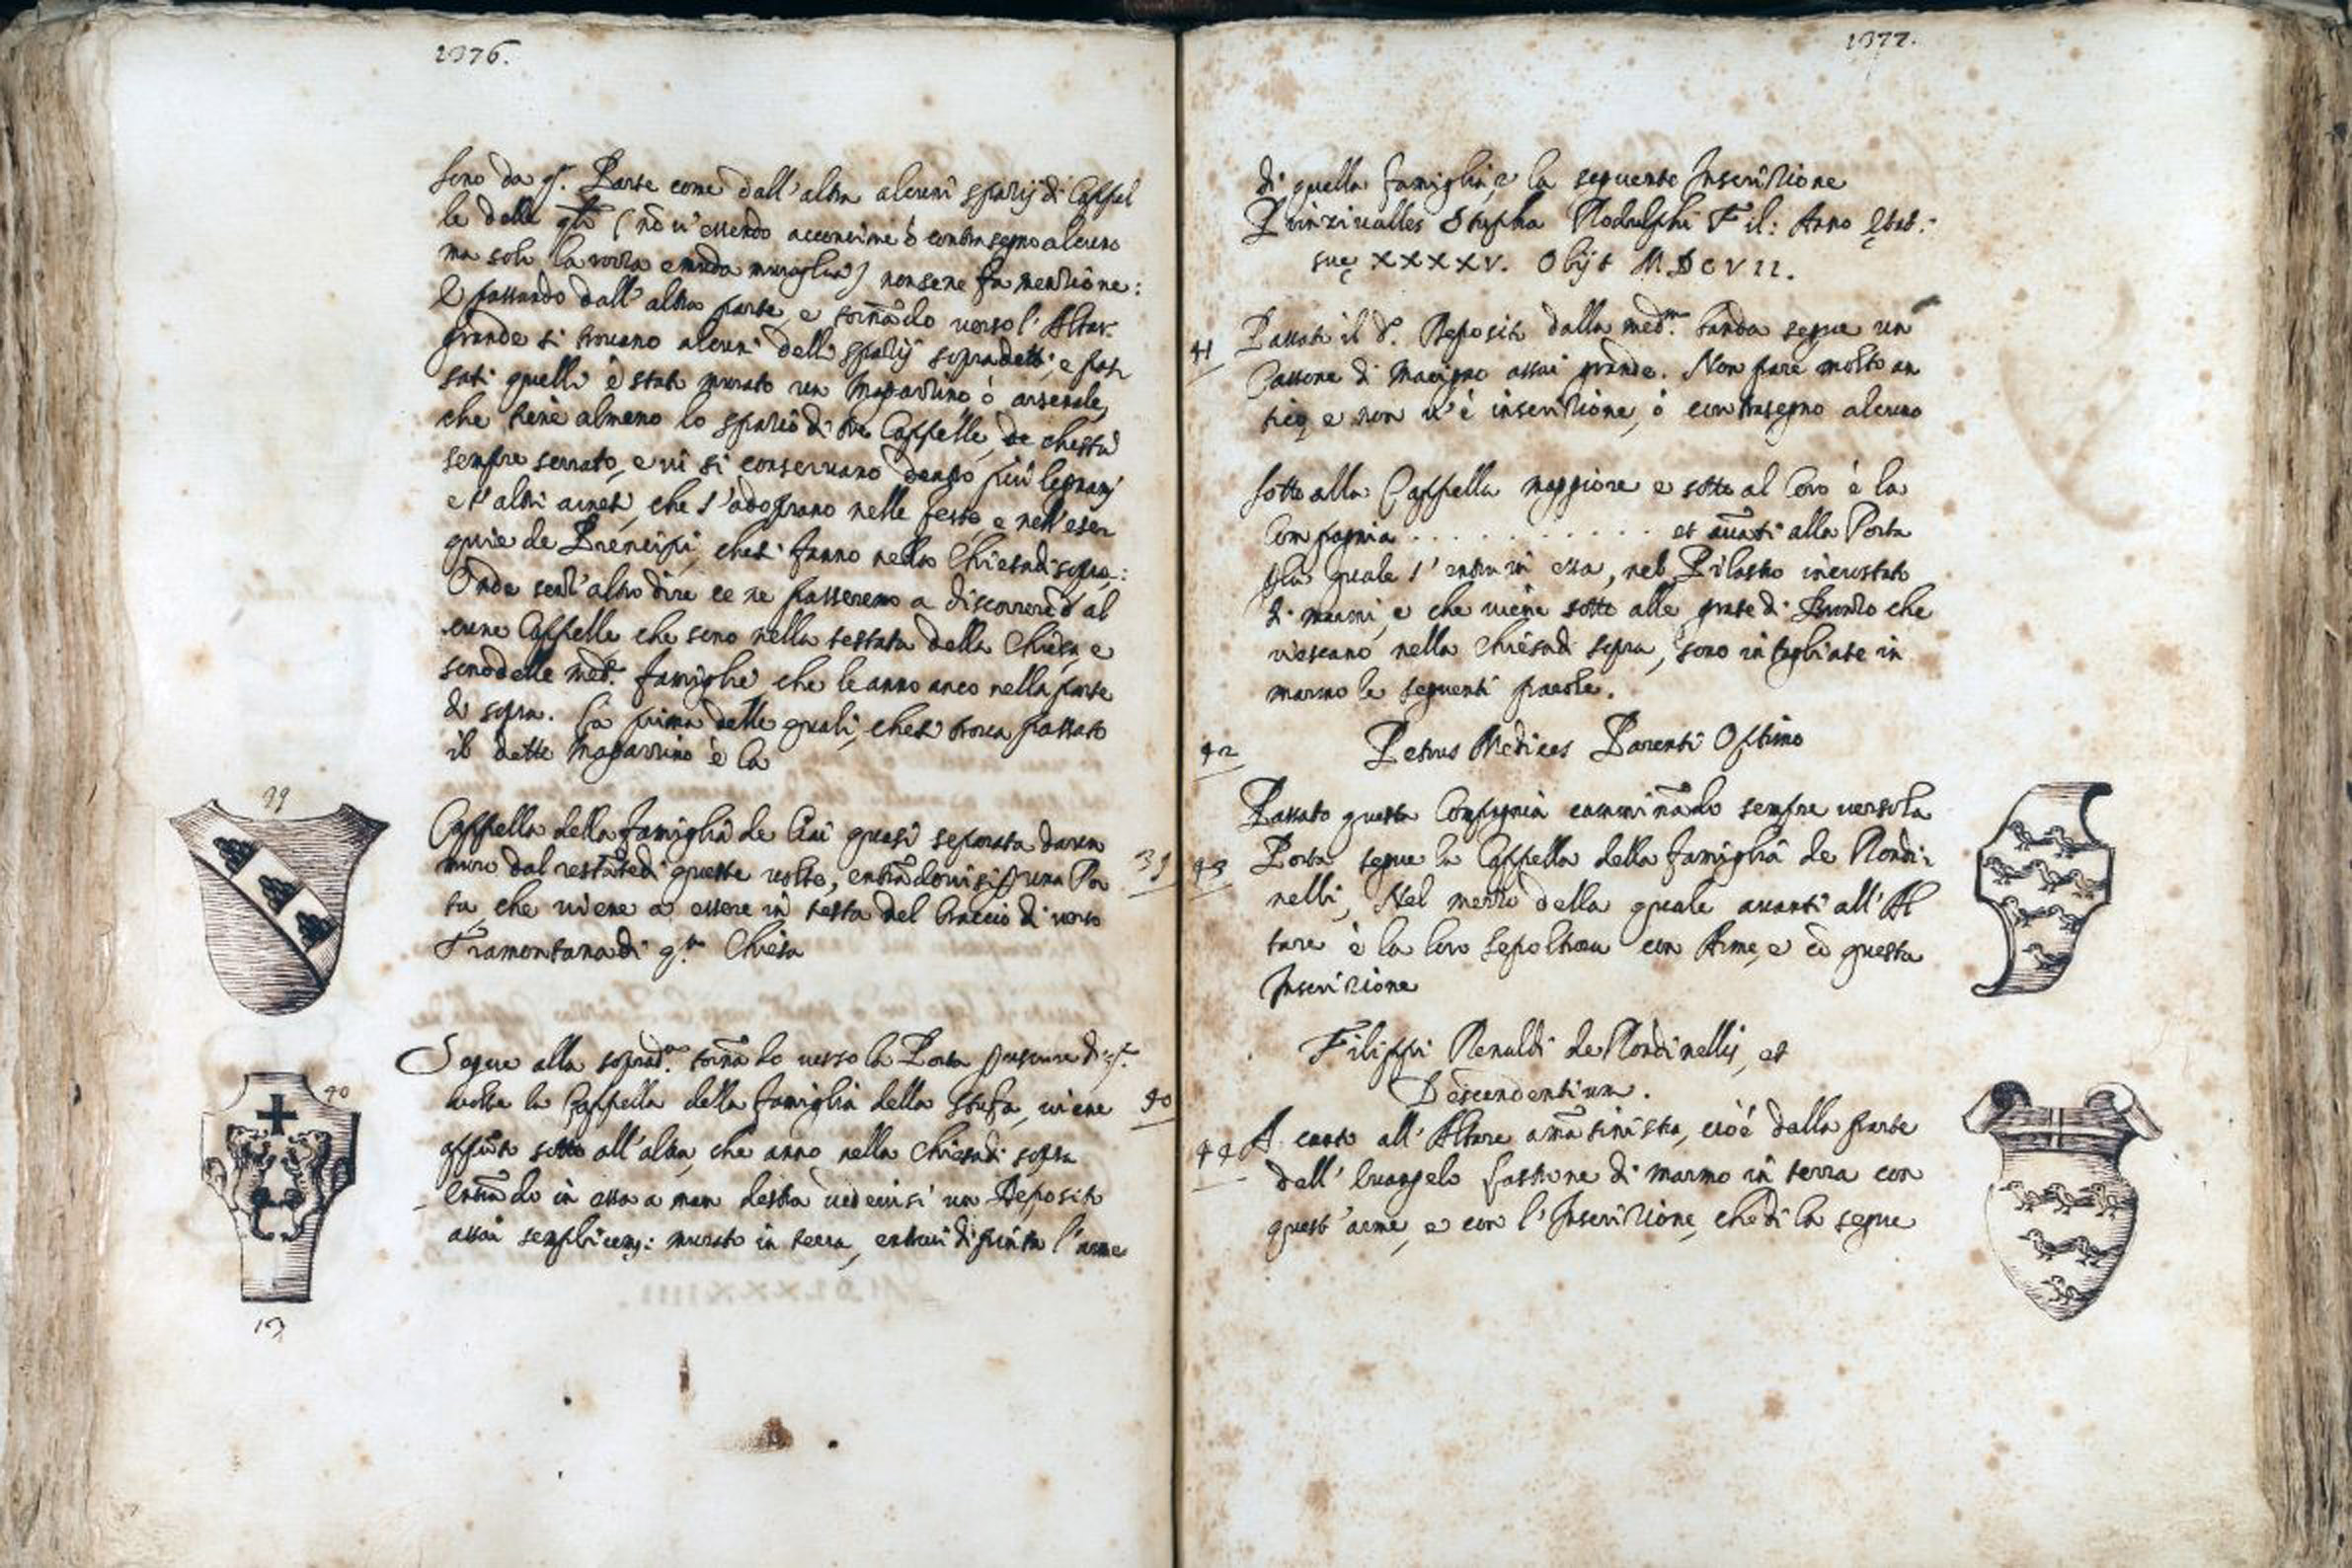 1376.
sono da q.ª Parte come dall'altra alcuni spazij di Cappel
le delle q̃li (nõ v'essendo acconcime ò contrasegno alcuno
ma solo la rozza e nuda muraglia) non se ne fa menzione:
E passando dall'altra parte, e tornãdo verso l'Altar
grande si trovano alcuni delli spazij sopradetti, e pas
sati quelli è stato murato un Magazzino ò arsenale,
che tiene almeno lo spazio di tre Cappelle, che stà
sempre serrato, e vi si conservano dentro più legnami
e altri arnesi, che s'adoprano nelle feste, e nell'ese
quie de Prencipi, che si fanno nella Chiesa di sopra:
Onde senz'altro dire ce ne passeremo a discorrere d'al
cune Cappelle che sono nella testata della Chiesa, e
sono delle med.e famiglie, che le anno anco nella parte
di sopra. La prima delle quali, che si trova passato
il detto Magazzino è la
39
Cappella della famiglia de Ciai quasi separata da un
muro dal restãte di queste volte, entrãdovisi p una Por
ta, che viene a essere in testa del braccio di verso
Tramontana di q.ta Chiesa
39
Segue alla soprad.a tornãdo verso la Porta p uscire di q.e
volte la Cappella della famiglia della Stufa, viene
appũto sotto all'altra, che anno nella Chiesa di sopra
Entrãdo in essa a man destra vedevisi un Deposito
assai semplicem: murato in terra, entrovi dipinta l'arme
40
40
13
1377.
di quella famiglia, e la seguente Inscrizione
Prinzivalles Stupha Rodulphi Fil: Anno Ętat:
suę XXXXV. Obijt MDCVII.
41
Passato il d.º Deposito dalla med.ma banda segue un
Cassone di Macigno assai grande. Non pare molto an
tico, e non v'è inscrizione, ò contrasegno alcuno
Sotto alla Cappella maggiore e sotto al Coro è la
Compagnia . . . . . . . . . . . et avãti alla Porta
p la quale s'entra in essa, nel Pilastro incrostato
di marmi, e che viene sotto alle grate di Bronzo che
riescano nella Chiesa di sopra, sono intagliate in
marmo le seguenti parole.
42
Petrus Medices Parenti Optimo
Passato questa Compagnia camminãdo sempre verso la
43
Porta segue la Cappella della famiglia de Rondi-
nelli, Nel mezzo della quale avanti all'Al
tare è la loro sepoltura con Arme, e cõ questa
Inscrizione
Filippi Renaldi de Rondinellis, et
Descendentium.
44
A canto all'Altare a mã sinistra, cioè dalla parte
dell'Evangelo lastrone di marmo in terra con
quest'arme, e con l'Inscrizione, che di la segue